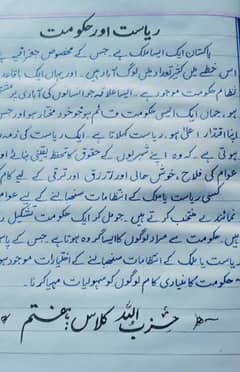 ریاست اور حکومت
پاکستان ایک ایسا ملک ہے جس کے مخصوص جغرافیے
اس خطے میں کثیر تعداد میں لوگ آباد ہیں۔ اور یہاں ایک باقاعدہ
نظام حکومت موجود ہے۔ ایسا علاقہ جو انسانوں کی آبادی پر مشتمل
ہو، جہاں ایک ایسی حکومت قائم ہو جو خود مختار ہو اور جس
اپنا اقتدار اعلیٰ ہو، ریاست کہلاتا ہے۔ ایک ریاست کی ذمہ داری
ہوتی ہے۔ کہ وہ اپنے شہریوں کے حقوق کا تحفظ یقینی بنائے اور
عوام کی فلاح، خوش حالی اور ترقی کے لیے کام
کسی ریاست یا ملک کے انتظامات سنبھالنے کے لیے عوام
نمائندے منتخب کرتے ہیں۔ جو مل کر ایک حکومت تشکیل
ہیں۔ حکومت سے مراد لوگوں کا ایسا گروہ ہوتا ہے۔ جس کے پاس
ریاست یا ملک کے انتظامات سنبھالنے کے اختیارات موجود ہوں
حکومت کا بنیادی کام لوگوں کو سہولیات مہیا کرنا۔
حزب اللہ کلاس ہفتم